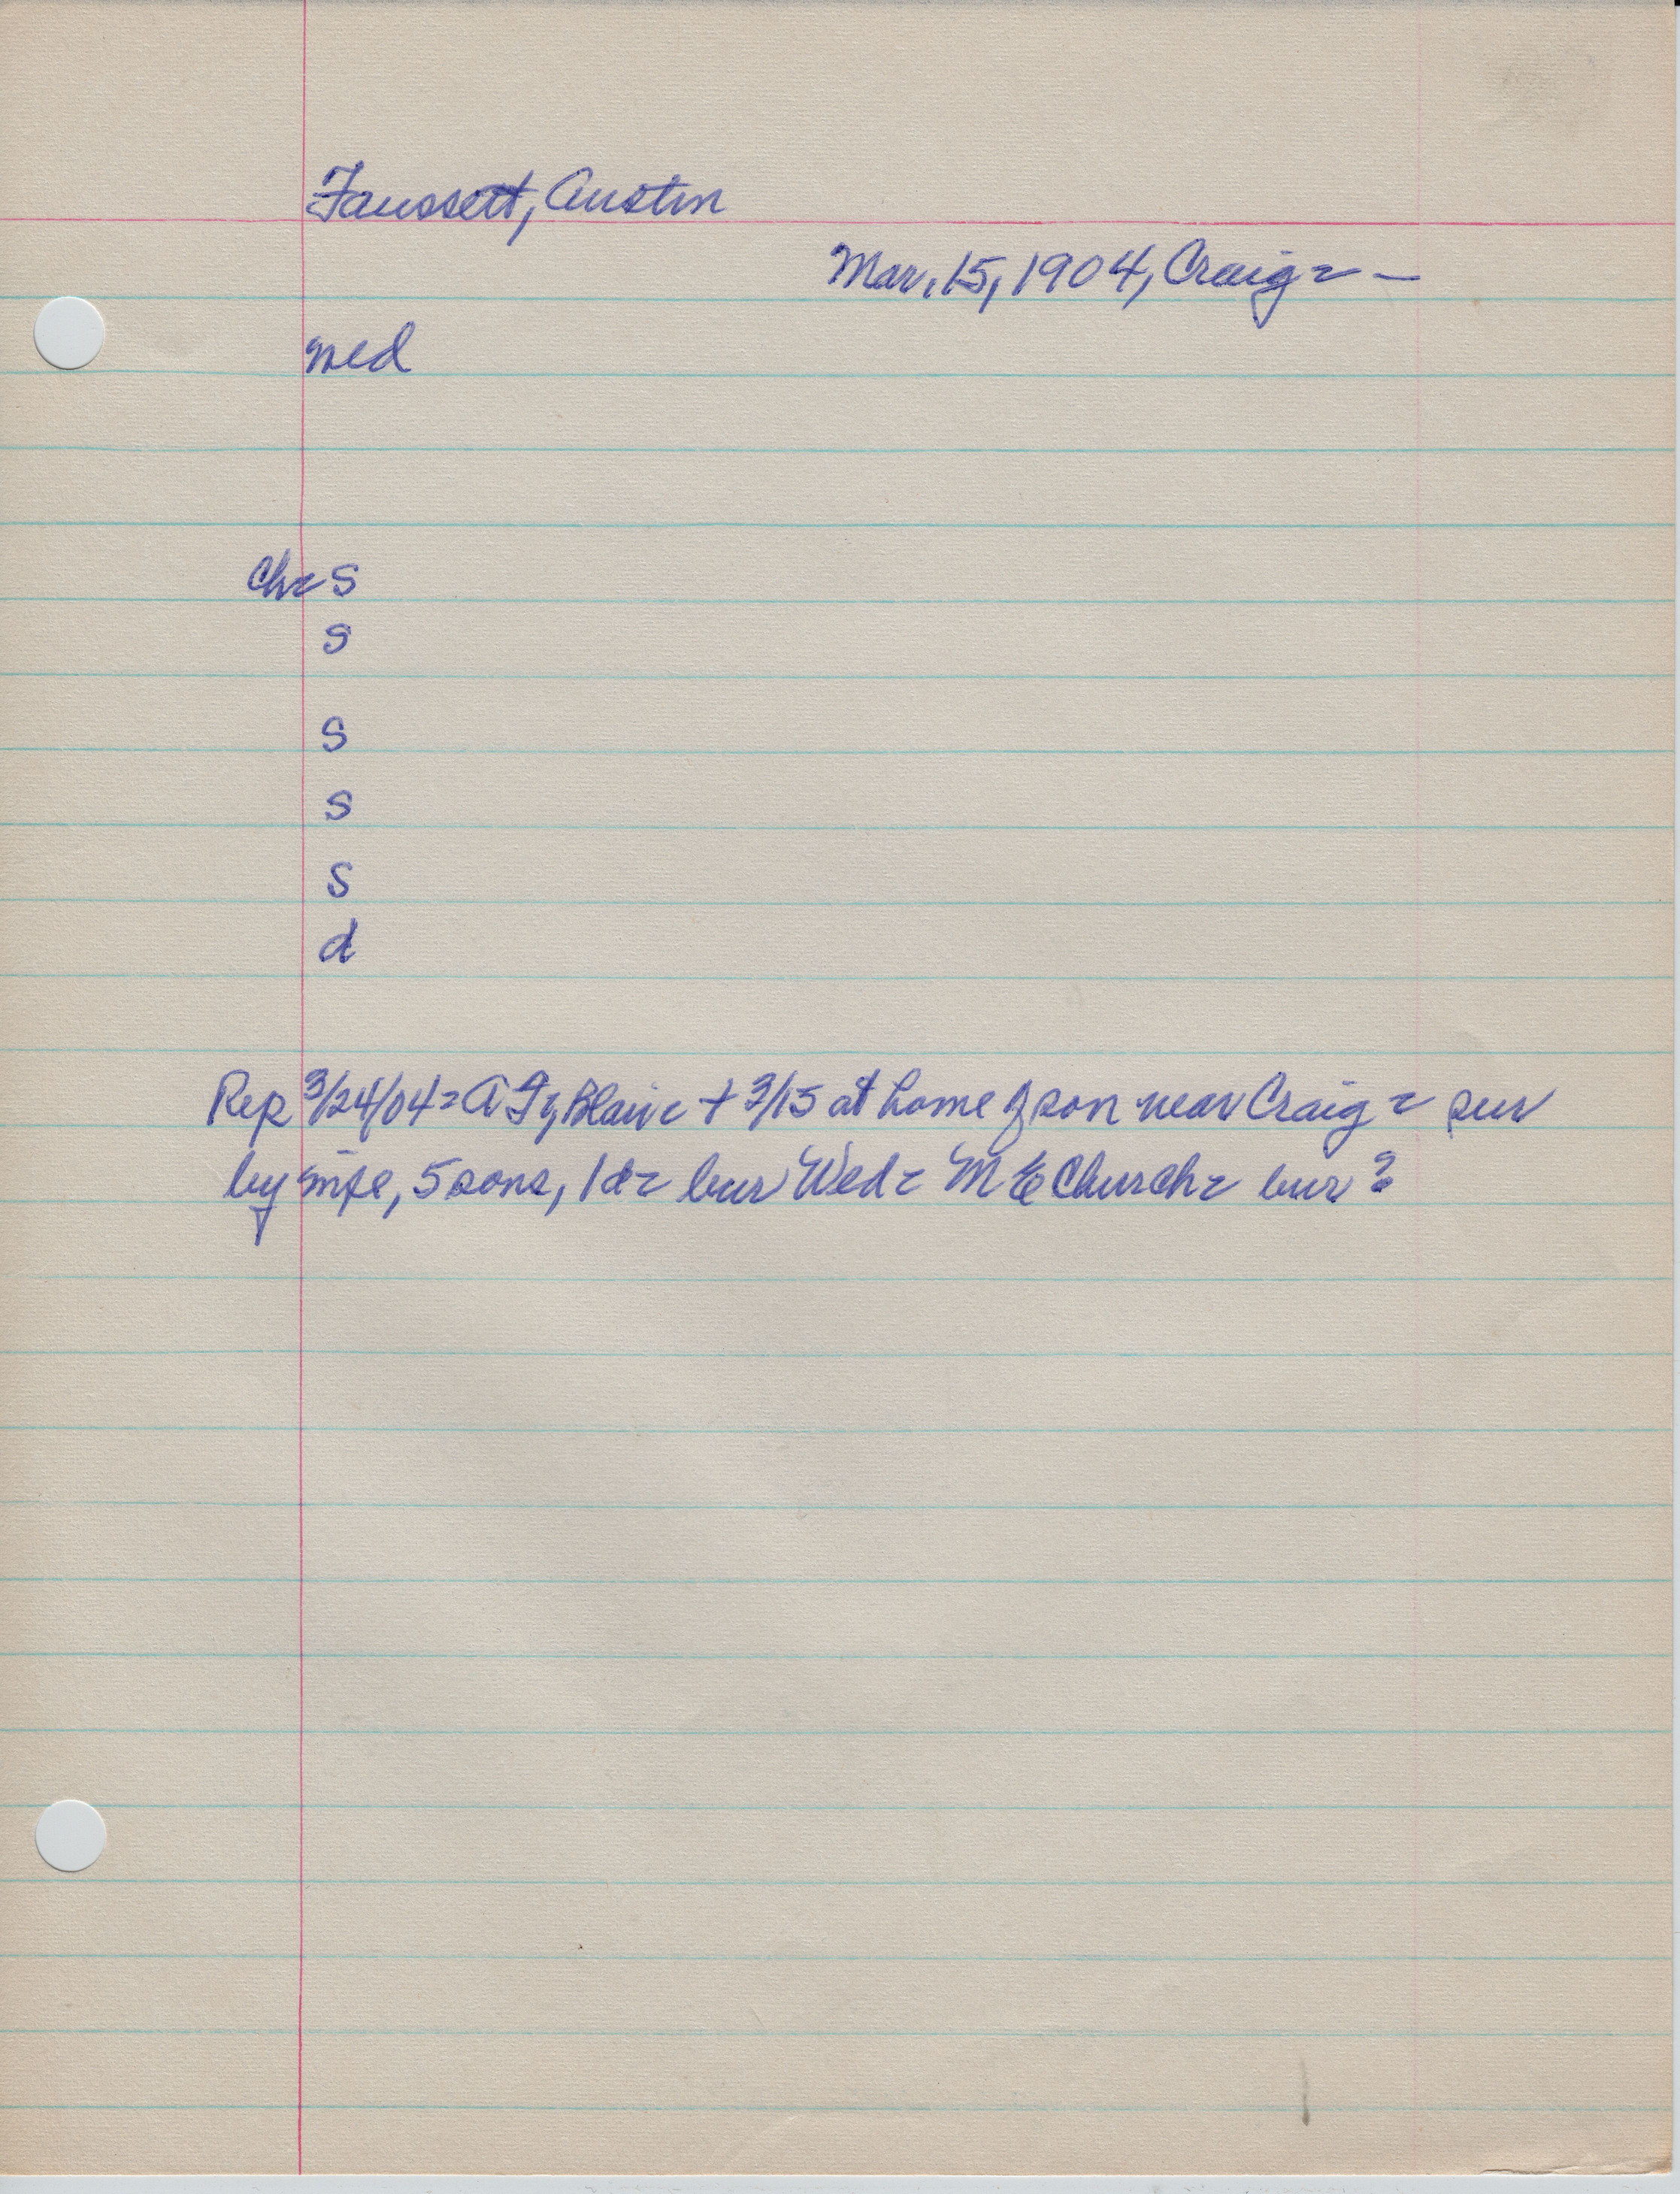 Faussett, Austin
Mar. 15, 1904, Craig = —
med
Ch = S
S
S
S
S
d
Rep 3/24/04 = A F of Blair = + 3/15 at home of son near Craig = sur
by wife, 5 sons, 1 d = bur Wed = M E Church = bur ?